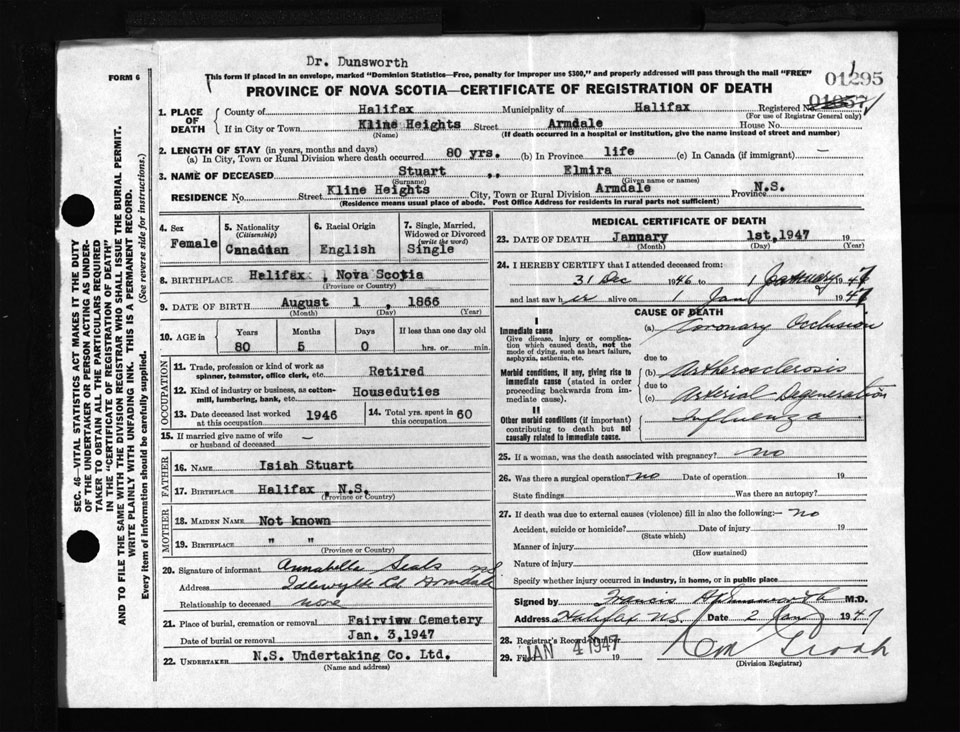 Dr. Dunsworth
FORM 6
This form if placed in an envelope, marked "Dominion Statistics—Free, penalty for improper use $300," and properly addressed will pass through the mail "FREE"
01295
PROVINCE OF NOVA SCOTIA—CERTIFICATE OF REGISTRATION OF DEATH
1. PLACE OF DEATH
County of Halifax Municipality of Halifax Registered No. 01057
(For use of Registrar General only)
If in City or Town Kline Heights Street Armdale House No.
(Name) (If death occurred in a hospital or institution, give the name instead of street and number)
2. LENGTH OF STAY (in years, months and days)
(a) In City, Town or Rural Division where death occurred 80 yrs. (b) In Province life (c) In Canada (if immigrant) —
3. NAME OF DECEASED Stuart ,, Elmira
(Surname) (Given name or names)
RESIDENCE No. Street Kline Heights City, Town or Rural Division Armdale Province N.S.
(Residence means usual place of abode. Post Office Address for residents in rural parts not sufficient)
4. Sex
Female
5. Nationality
(Citizenship)
Canadian
6. Racial Origin
English
7. Single, Married, Widowed or Divorced
(write the word)
Single
8. BIRTHPLACE Halifax , Nova Scotia
(Province or Country)
9. DATE OF BIRTH August 1 , 1866
(Month) (Day) (Year)
10. AGE in
Years Months Days If less than one day old
80 5 0 hrs. or min.
OCCUPATION
11. Trade, profession or kind of work as
spinner, teamster, office clerk, etc. Retired
12. Kind of industry or business, as cotton-
mill, lumbering, bank, etc. Houseduties
13. Date deceased last worked
at this occupation 1946
14. Total yrs. spent in
this occupation 60
15. If married give name of wife
or husband of deceased —
FATHER
16. NAME Isiah Stuart
17. BIRTHPLACE Halifax , N.S.
(Province or Country)
MOTHER
18. MAIDEN NAME Not known
19. BIRTHPLACE " "
(Province or Country)
20. Signature of informant Annabella Seals
Address Idlewylde Rd Armdale
Relationship to deceased none
21. Place of burial, cremation or removal Fairview Cemetery
Date of burial or removal Jan. 3,1947
22. UNDERTAKER N.S. Undertaking Co. Ltd.
(Name and address)
MEDICAL CERTIFICATE OF DEATH
23. DATE OF DEATH Jannary 1st,1947 19
(Month) (Day) (Year)
24. I HEREBY CERTIFY that I attended deceased from:
31 Dec 1946 to 1 January 1947
and last saw her alive on 1 Jan 1947
CAUSE OF DEATH
I
Immediate cause
Give disease, injury or complica-
tion which caused death, not the
mode of dying, such as heart failure,
asphyxia, asthenia, etc.
(a) Coronary Occlusion
due to
Morbid conditions, if any, giving rise to
immediate cause (stated in order
proceeding backwards from im-
mediate cause).
(b) Artherosclerosis
due to
(c) Arterial Degeneration
II
Other morbid conditions (if important)
contributing to death but not
causally related to immediate cause.
Influenza
25. If a woman, was the death associated with pregnancy? no
26. Was there a surgical operation? no Date of operation 19
State findings Was there an autopsy?
27. If death was due to external causes (violence) fill in also the following:— no
Accident, suicide or homicide? Date of injury 19
(State which)
Manner of injury
(How sustained)
Nature of injury
Specify whether injury occurred in industry, in home, or in public place
Signed by Francis A Dunsworth M.D.
Address Halifax NS. Date 2 Jan 1947
28. Registrar's Record Number
29. Filed JAN 4 1947 19
(Division Registrar)
SEC. 46—VITAL STATISTICS ACT MAKES IT THE DUTY
OF THE UNDERTAKER OR PERSON ACTING AS UNDER-
TAKER TO OBTAIN ALL THE PARTICULARS REQUIRED
IN THE "CERTIFICATE OF REGISTRATION OF DEATH"
AND TO FILE THE SAME WITH THE DIVISION REGISTRAR WHO SHALL ISSUE THE BURIAL PERMIT.
WRITE PLAINLY WITH UNFADING INK. THIS IS A PERMANENT RECORD.
Every item of information should be carefully supplied. (See reverse side for instructions.)